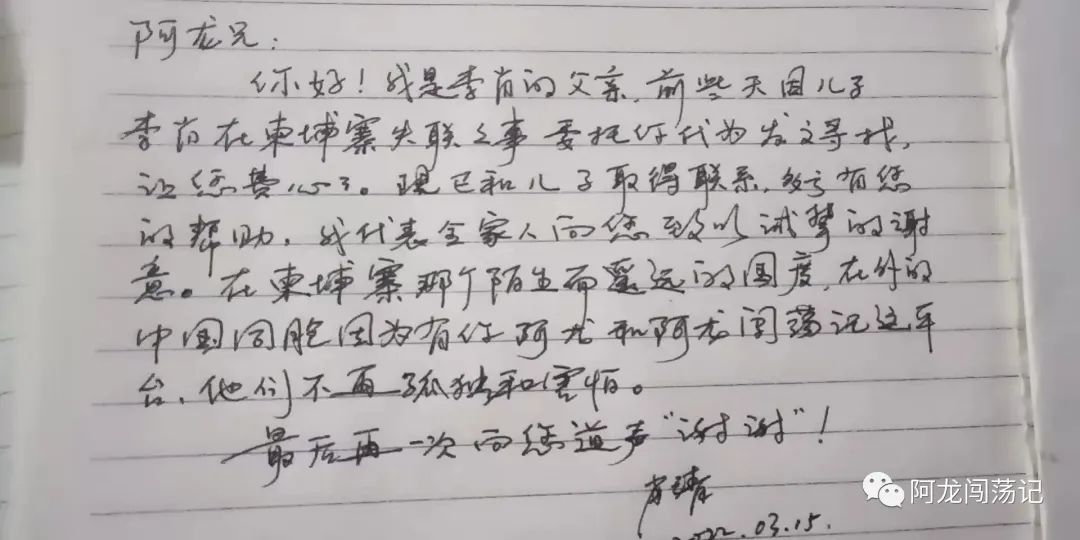 阿龙兄:
你好!我是李肖的父亲,前些天因儿子
李肖在柬埔寨失联之事委托你代为发文寻找,
让您费心了。现已和儿子取得联系,多亏有您
的帮助,我代表全家人向您致以诚挚的谢
意。在柬埔寨那个陌生而遥远的国度,在外的
中国同胞因为有你阿龙和阿龙闯荡记这平
台,他们不再孤独和害怕。
最后再一次向您道声“谢谢”!
2022.03.15.
阿龙闯荡记